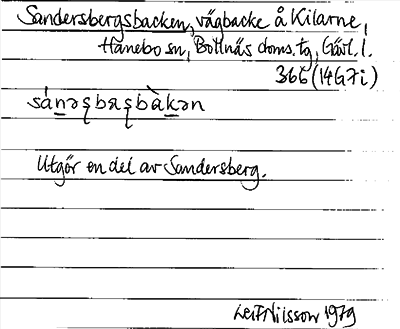 Sandersbergsbacken, vägbacke å Kilarne,
Hanebo sn, Bollnäs doms.tg, Gävl. l.
366 (14G7i)
sánəʂbæʂbàkən
Utgör en del av Sandersberg.
Leif Nilsson 1979